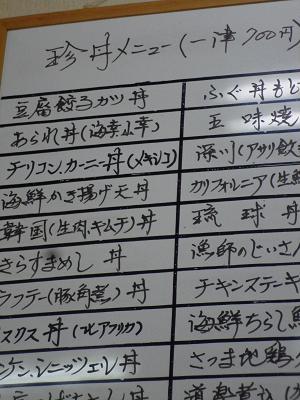 珍丼メニュー(一津700円)
豆腐餃子カツ丼
あられ丼(海幸山幸)
チリコン.カーニー丼(メキシコ)
海鮮かき揚げ天丼
韓国(生肉.キムチ)丼
きらすまめし 丼
ラフテー(豚角煮)丼
スクス丼(北アフリカ)
ンケン.シニッツェル丼
ふぐ丼もど
五味焼
深川(アサリ飲
カリフォルニア(生
琉球丼
漁師のじいさん
チキンステーキ
海鮮ちらし
さつま地鶏